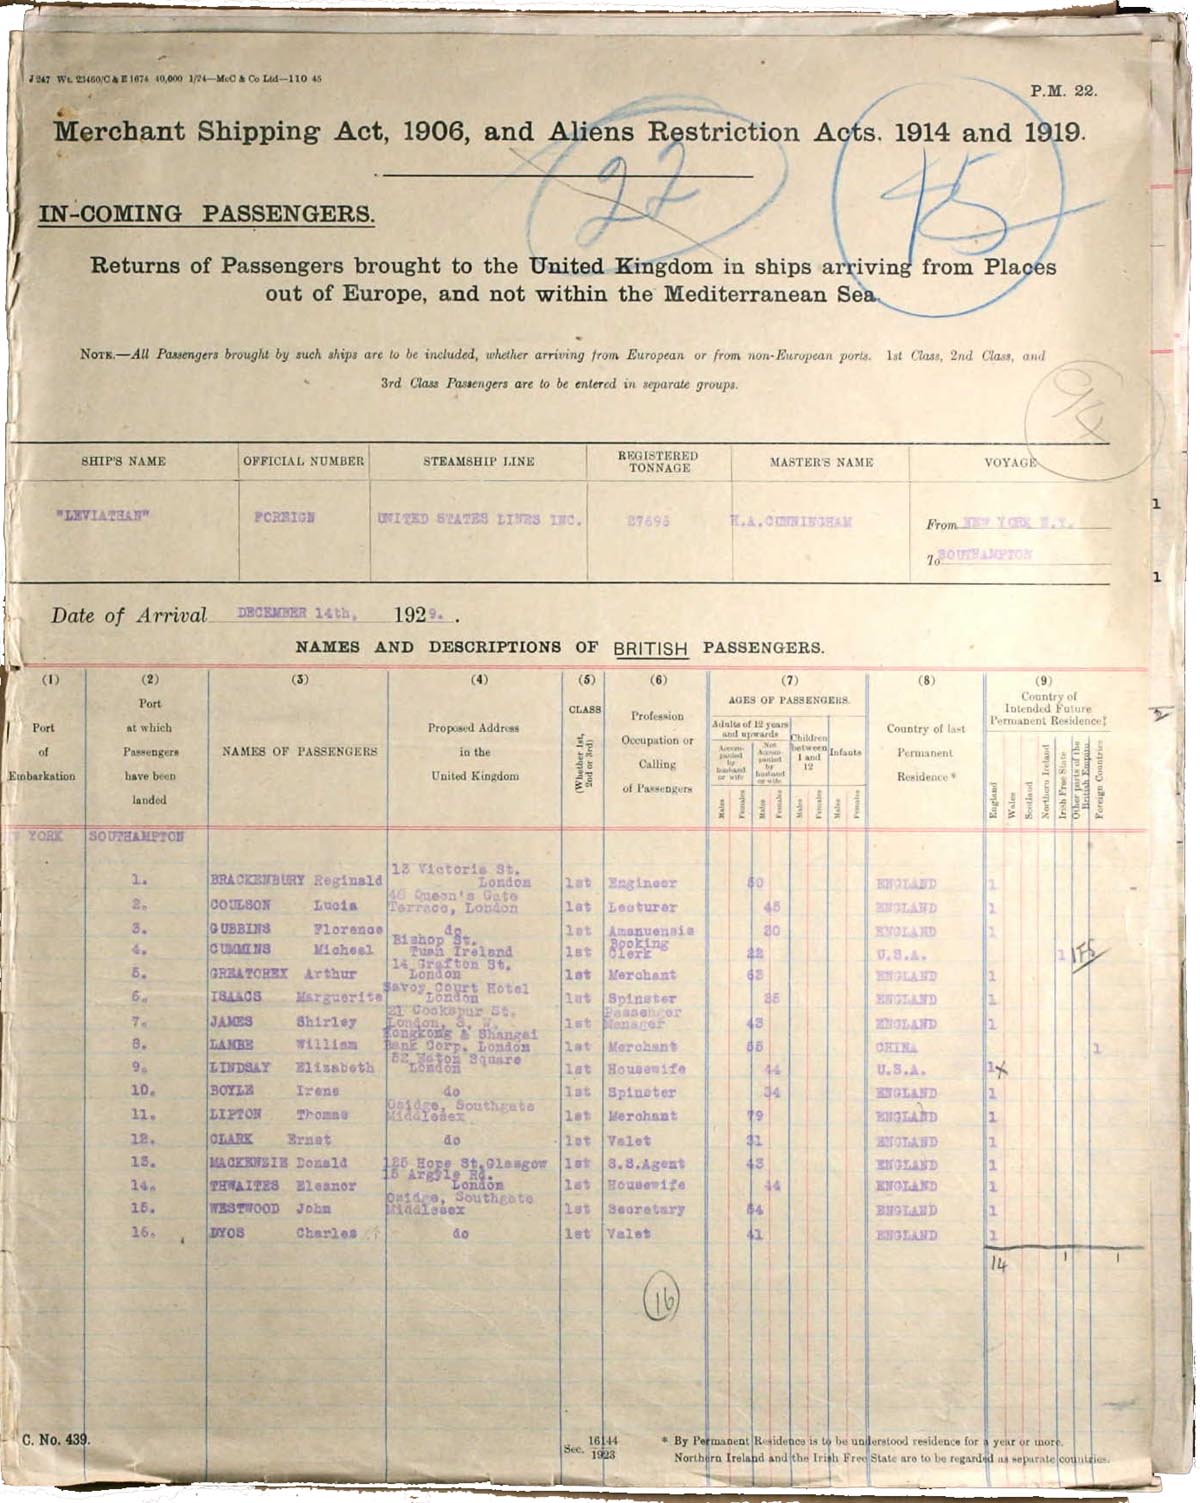 J 247 Wt. 23460/C & E 1674 40,000 1/24—McC & Co Ltd—110 45
P.M. 22.
Merchant Shipping Act, 1906, and Aliens Restriction Acts. 1914 and 1919.
22 45
IN-COMING PASSENGERS.
Returns of Passengers brought to the United Kingdom in ships arriving from Places
out of Europe, and not within the Mediterranean Sea.
NOTE.—All Passengers brought by such ships are to be included, whether arriving from European or from non-European ports. 1st Class, 2nd Class, and
3rd Class Passengers are to be entered in separate groups.
SHIP'S NAME OFFICIAL NUMBER STEAMSHIP LINE REGISTERED TONNAGE MASTER'S NAME VOYAGE
"LEVIATHAN" FOREIGN UNITED STATES LINES INC. 27695 H.A.CUNNINGHAM From NEW YORK N.Y.
To SOUTHAMPTON
Date of Arrival DECEMBER 14th, 1929. .
NAMES AND DESCRIPTIONS OF BRITISH PASSENGERS.
(1) (2) (3) (4) (5) (6) (7) (8) (9)
Port of Embarkation
Port at which Passengers have been landed
NAMES OF PASSENGERS
Proposed Address in the United Kingdom
CLASS (Whether 1st, 2nd or 3rd)
Profession Occupation or Calling of Passengers
AGES OF PASSENGERS.
Adults of 12 years and upwards
Accompanied by husband or wife
Not Accompanied by husband or wife
Children between 1 and 12
Infants
Males Females Males Females Males Females Males Females
Country of last Permanent Residence *
Country of Intended Future Permanent Residence
England Wales Scotland Northern Ireland Irish Free State Other parts of the British Empire Foreign Countries
YORK SOUTHAMPTON
1. BRACKENBURY Reginald 13 Victoria St. London 1st Engineer 50 ENGLAND 1
2. COULSON Lucia 46 Queen's Gate Terrace, London 1st Lecturer 45 ENGLAND 1
3. GUBBINS Florence do 1st Amanuensis 30 ENGLAND 1
4. CUMMINS Micheal Bishop St. Tuam Ireland 1st Booking Clerk 22 U.S.A. 1 IFS
5. GREATOREX Arthur 14 Grafton St. London 1st Merchant 63 ENGLAND 1
6. ISAACS Marguerite Savoy Court Hotel London 1st Spinster 35 ENGLAND 1
7. JAMES Shirley 21 Cockspur St. London, S. W. 1st Passenger Manager 43 ENGLAND 1
8. LAMBE William Hongkong & Shangai Bank Corp. London 1st Merchant 55 CHINA 1
9. LINDSAY Elizabeth 52 Eaton Square London 1st Housewife 44 U.S.A. 1x
10. BOYLE Irene do 1st Spinster 34 ENGLAND 1
11. LIPTON Thomas Osidge, Southgate Middlesex 1st Merchant 79 ENGLAND 1
12. CLARK Ernst do 1st Valet 31 ENGLAND 1
13. MACKENSIE Donald 125 Hope St,Glasgow 1st S.S.Agent 43 ENGLAND 1
14. THWAITES Eleanor 15 Argyle Rd. London 1st Housewife 44 ENGLAND 1
15. WESTWOOD John Osidge, Southgate Middlesex 1st Secretary 54 ENGLAND 1
16. DYOS Charles do 1st Valet 41 ENGLAND 1
14 1 1
16
C. No. 439.
Sec. 16144/1923
* By Permanent Residence is to be understood residence for a year or more.
Northern Ireland and the Irish Free State are to be regarded as separate countries.